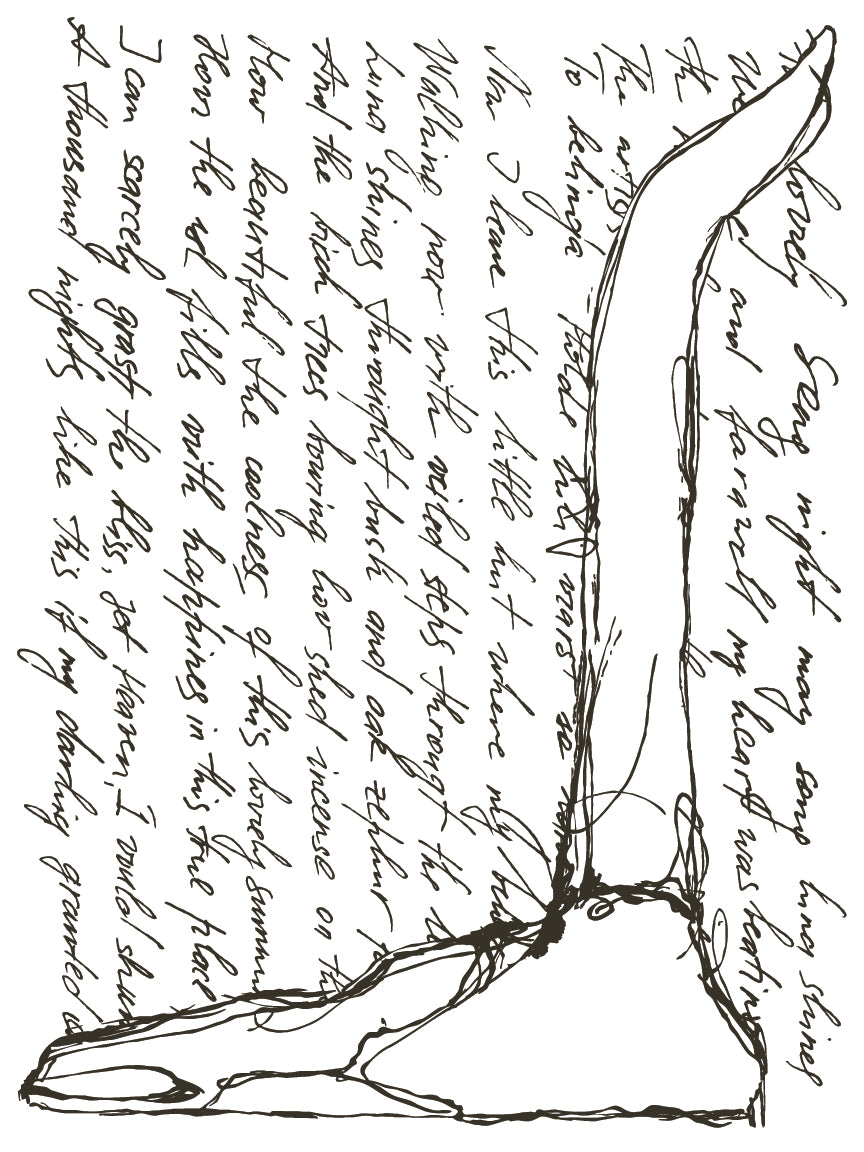 lovely Song night may song luna shines
and farwell my heart was beating
The
The artis
To
Now I leave this little hut where my
Walking now with veiled steps througt the
Luna shines throuight bush and oak zephur
And the birch trees bowing low shed incense on th
How beautiful the coolness of this lovely summ
How the sol fills with happines in this true place
I can scarcely grasp the bliss, yet Heaven, I would shun
A thousand nights like this if my darling granted